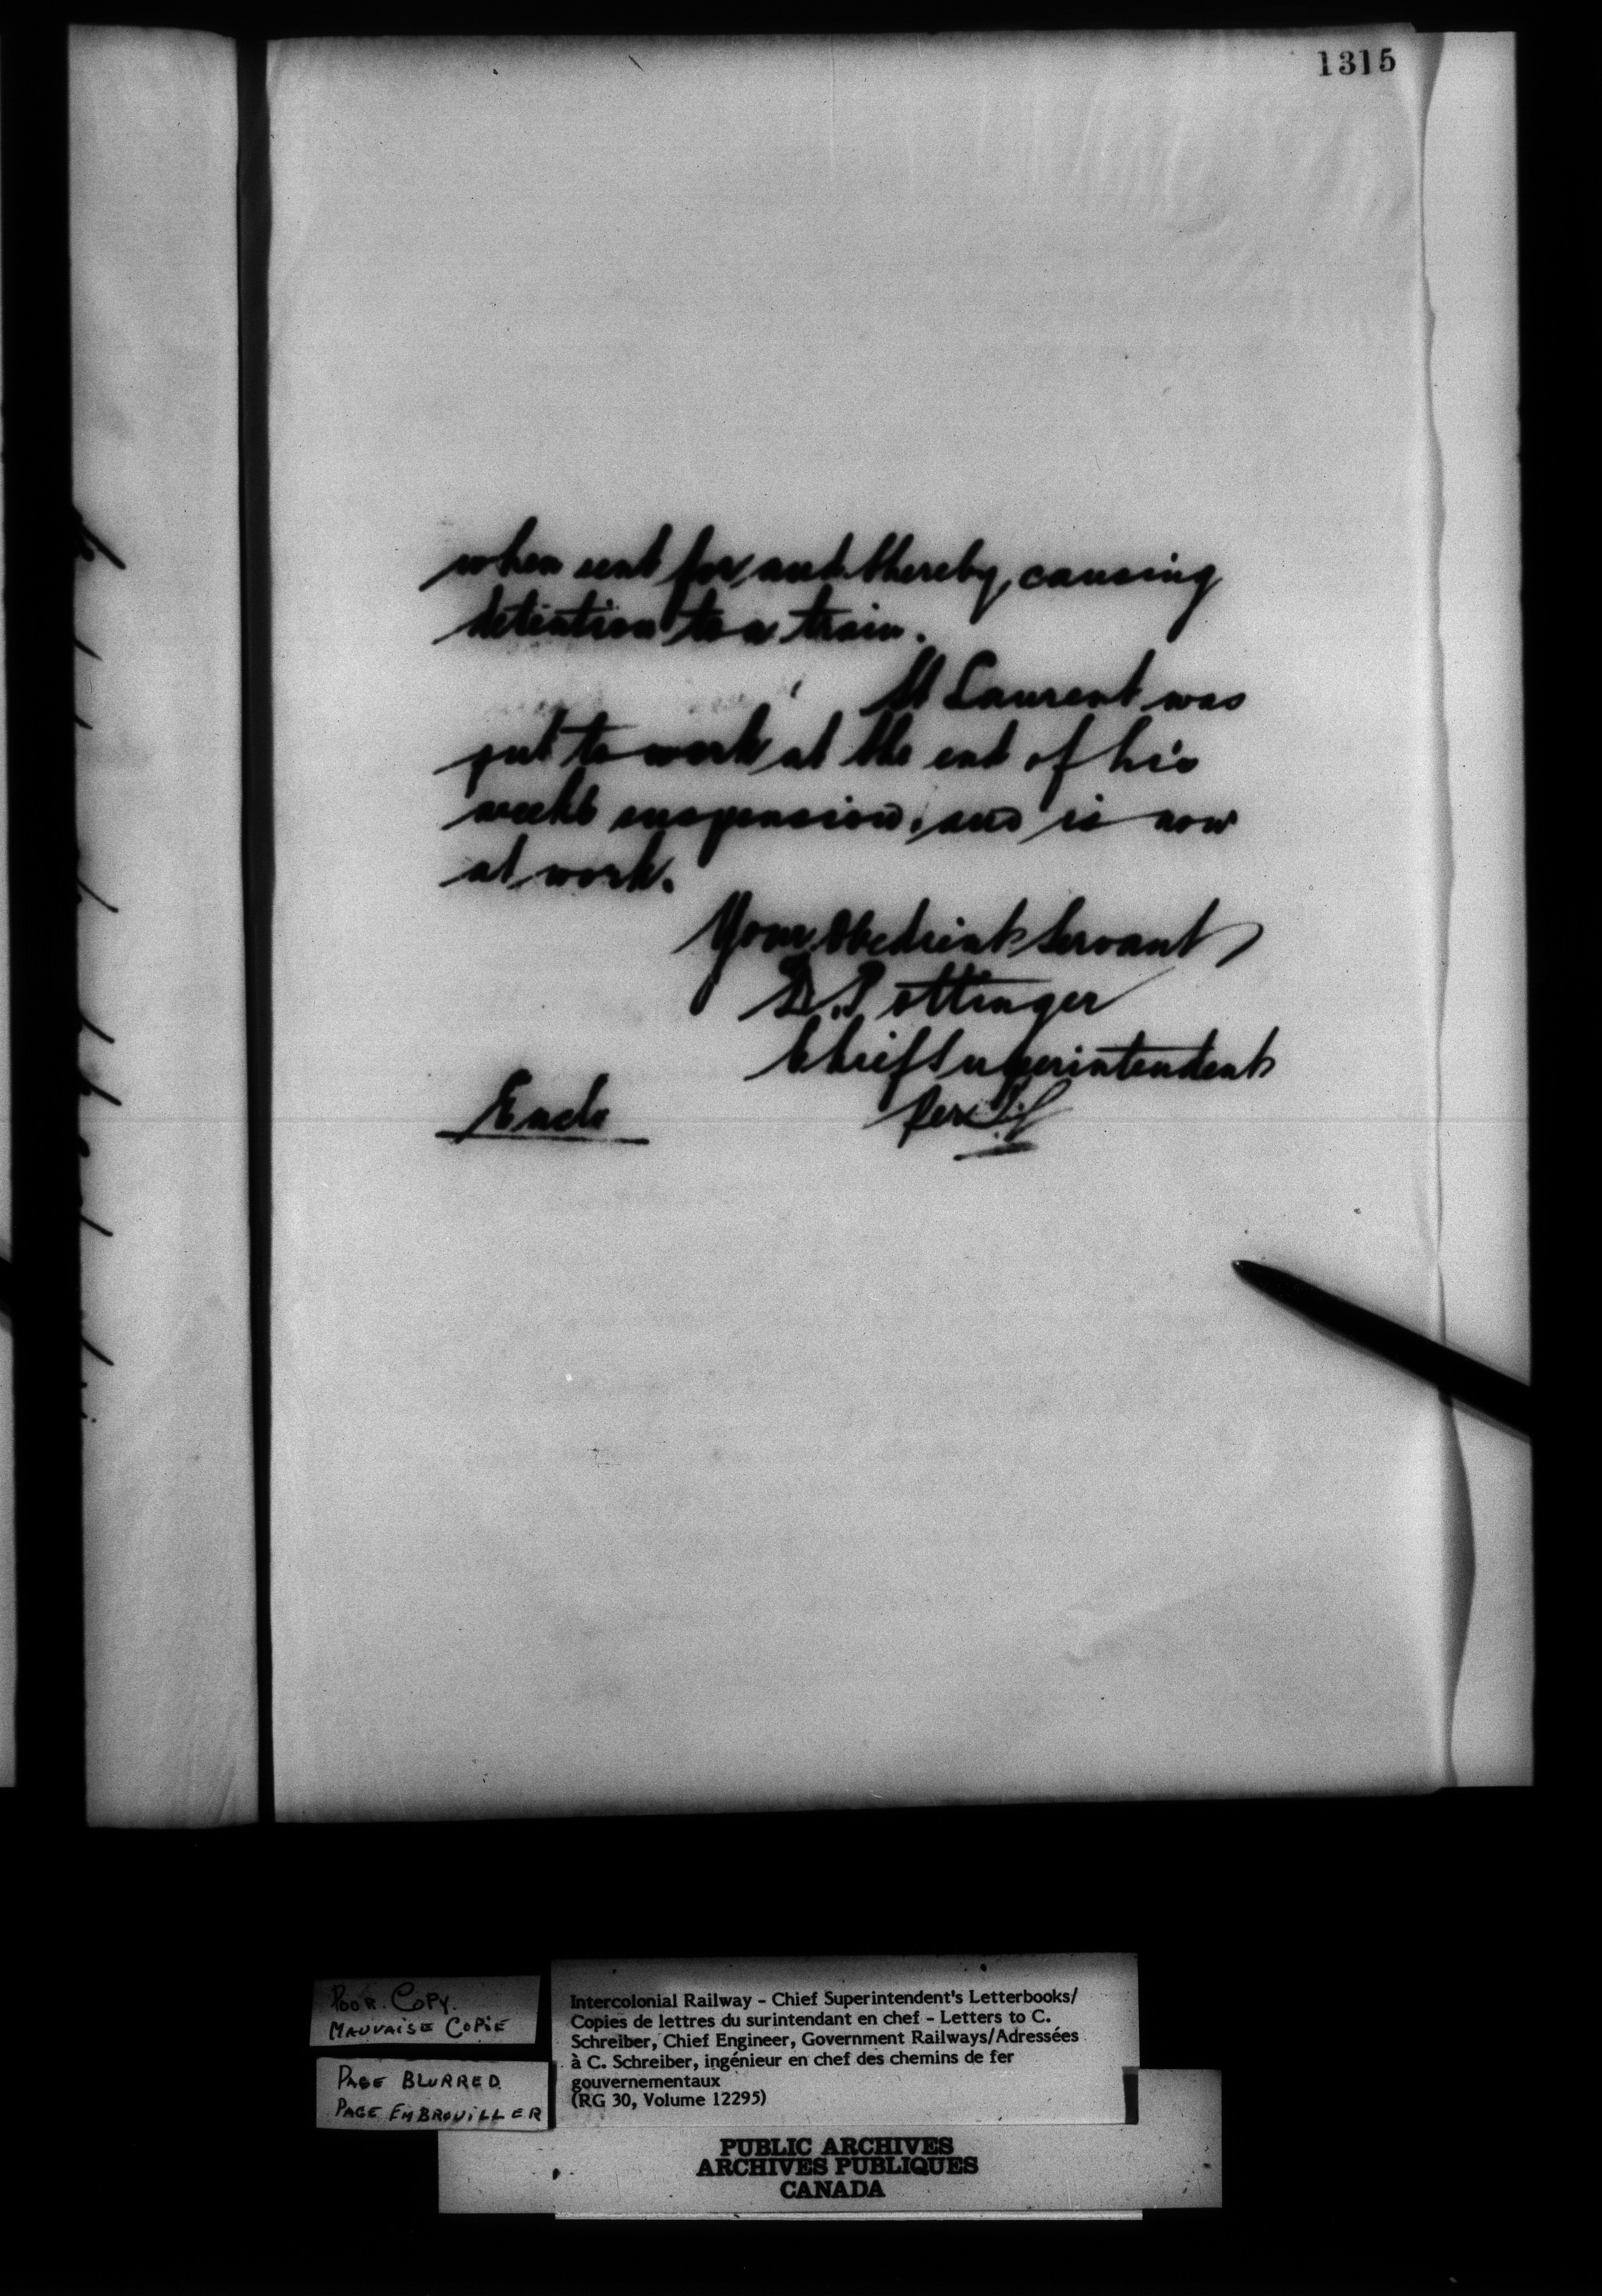 1315
when sent for, and thereby, causing
detention to a train.
St Laurent was
put to work at the end of his
weeks suspension, and is now
at work.
Your Obedient Servant
D. Pottinger
Chief Superintendent
Encls
Per
POOR COPY.
MAUVAISE COPIE
PAGE BLURRED
PAGE EMBROUILLER
Intercolonial Railway - Chief Superintendent's Letterbooks/
Copies de lettres du surintendant en chef - Letters to C.
Schreiber, Chief Engineer, Government Railways/Adressées
à C. Schreiber, ingénieur en chef des chemins de fer
gouvernementaux
(RG 30, Volume 12295)
PUBLIC ARCHIVES
ARCHIVES PUBLIQUES
CANADA